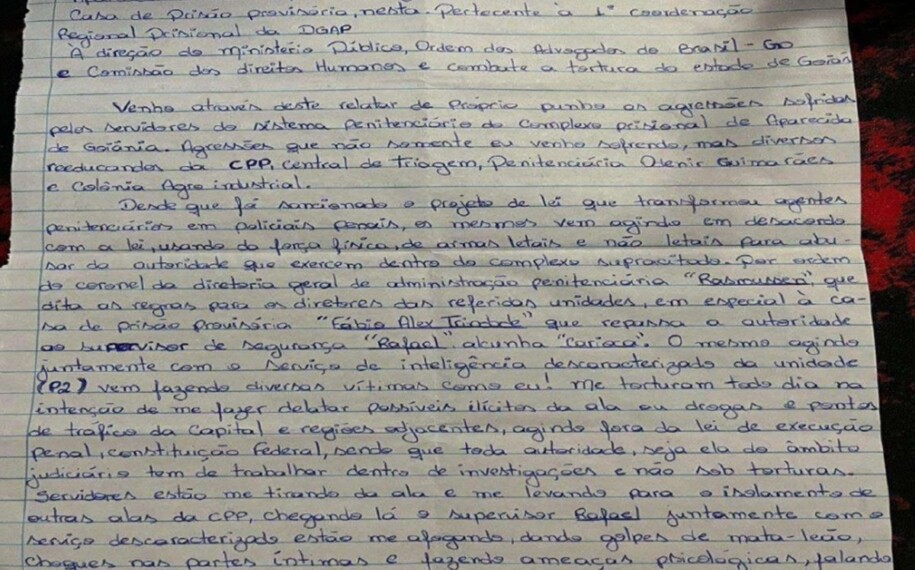 Casa de Prisão provisória, nesta. Pertecente à 1ª coordenação
Regional Prisional da DGAP
À direção do ministério Público, Ordem dos Advogados do Brasil - GO
e Comissão dos direitos Humanos e combate a tortura do estado de Goiás
Venho através deste relatar de Próprio punho as agressões sofridas
pelos servidores do sistema penitenciário do Complexo prisional de Aparecida
de Goiânia. Agressões que não somente eu venho sofrendo, mas diversos
reeducandos da CPP, Central de Triagem, Penitenciária Odenir Guimarães
e Colônia Agroindustrial.
Desde que foi sancionado o projeto de lei que transformou agentes
penitenciários em policiais penais, os mesmos vem agindo em desacordo
com a lei, usando da força física, de armas letais e não letais para abu-
sar da autoridade que exercem dentro do complexo supracitado. Por ordem
do coronel da diretoria geral de administração penitenciária "Rasmussen", que
dita as regras para os diretores das referidas unidades, em especial à ca-
sa de prisão provisória "Fábio Alex Trindade" que repassa a autoridade
ao supervisor de segurança "Rafael" alcunha "carioca". O mesmo agindo
juntamente com o serviço de inteligência descaracterizado da unidade
(P2) vem fazendo diversas vítimas como eu! me torturam todo dia na
intenção de me fazer delatar possíveis ilícitos da ala ou drogas e pontos
de tráfico da Capital e regiões adjacentes, agindo fora da lei de execução
penal, constituição Federal, sendo que toda autoridade, seja ela do âmbito
judiciário tem de trabalhar dentro de investigações e não sob torturas.
Servidores estão me tirando da ala e me levando para o isolamento de
outras alas da CPP, chegando lá o supervisor Rafael juntamente com o
serviço descaracterizado estão me afogando, dando golpes de mata-leão,
choques nas partes íntimas e fazendo ameaças psicológicas, falando